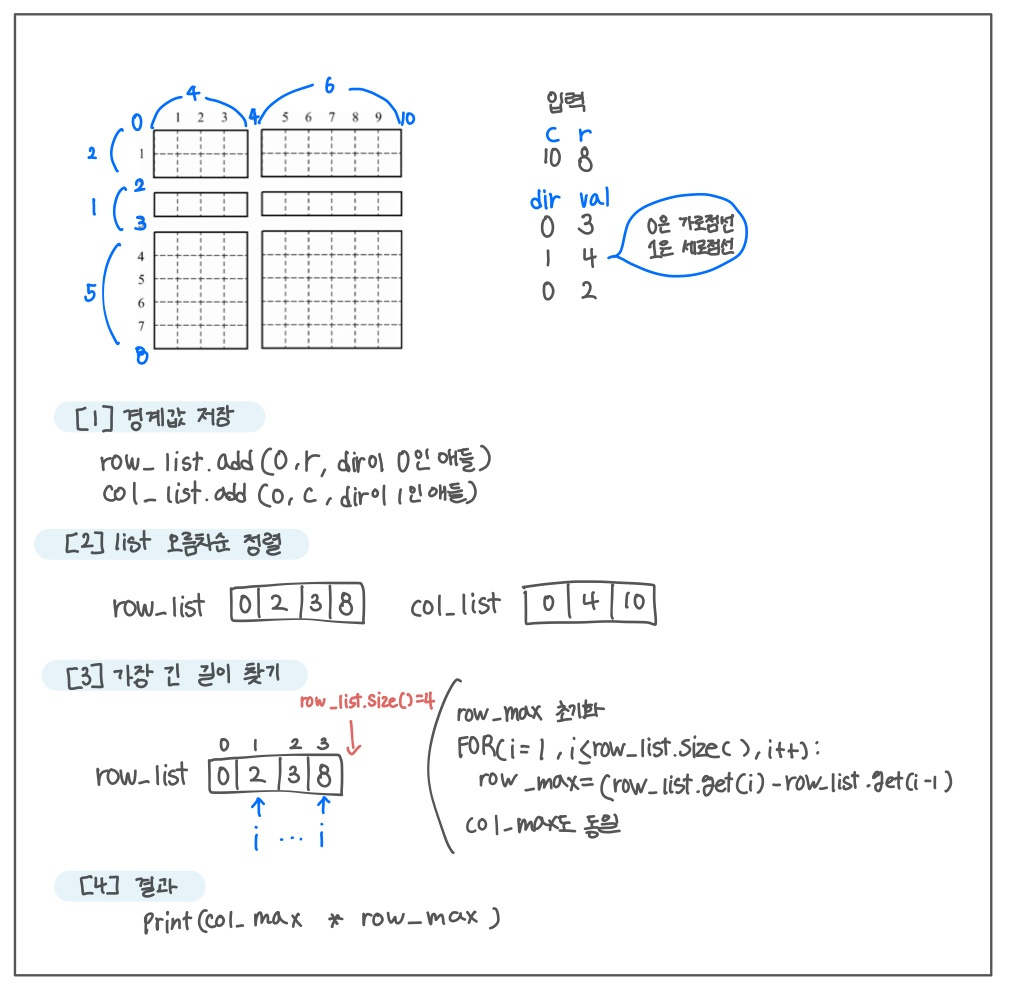 4 6
0 1 2 3 4 5 6 7 8 9 10
2 1
2
1
3
4
5
5
6
7
8
입력
c r
10 8
dir val
0 3
1 4
0 2
0은 가로점선
1은 세로점선
[1] 경계값 저장
row_list.add(0,r, dir이 0인 애들)
col_list.add(0, c, dir이 1인 애들)
[2] list 오름차순 정렬
row_list 0 2 3 8 col_list 0 4 10
[3] 가장 긴 길이 찾기
row_list.size()=4
0 1 2 3
row_list 0 2 3 8
i ... i
row_max 초기화
FOR(i=1, i≤row_list.size(), i++):
row_max=(row_list.get(i)-row_list.get(i-1)
col_max도 동일
[4] 결과
print(col_max * row_max)